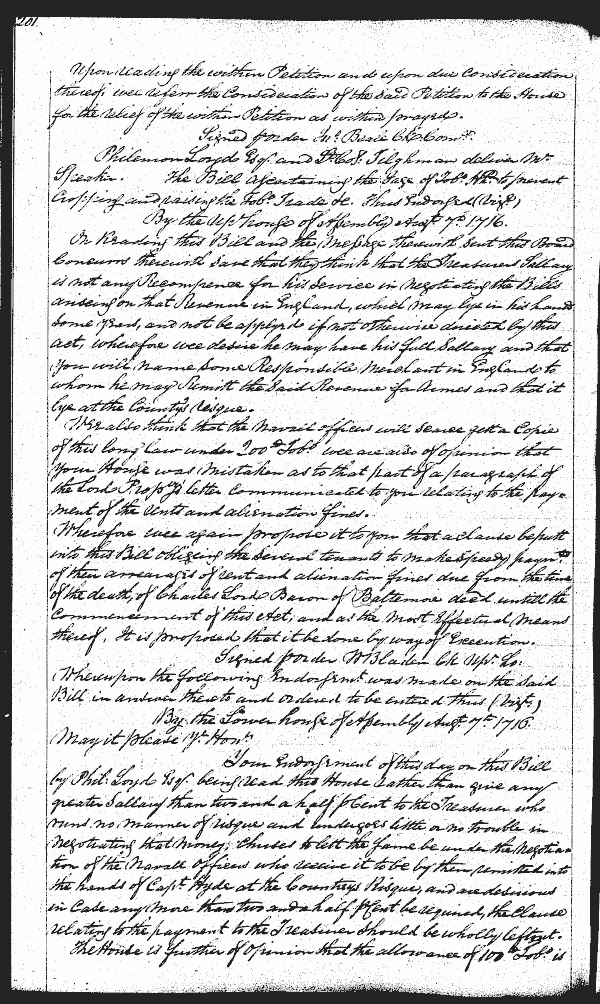 201.
Upon reading the within Petition and upon due Consideration
thereof wee referr the Consideration of the said Petition to the House
for the relief of the within Petition as within prayed.
Signed p order Jno. Beale Clk Comtt.
Philemon Loyd Esqr. and Col. Tilghman deliver Mr.
Speaker. The Bill ascertaining the Gage of Tobo. Hhds. to prevent
Cropping and raising the Tobo. Trade &c. Thus Endorsed (vizt.)
By the Upr. house of Assembly Augt. 7th. 1716.
On Reading this Bill and the Message therewith sent this Board
Concurrs therewith save that they think that the Treasurers Sallary
is not any Recompence for his service in negotiating the Bills
ariseing on that Revenue in England, which may lye in his hands
some years, and not be applyed if not otherwise directed by this
act, wherefore wee desire he may have his full Sallary and that
you will name some Responsible Merchant in England to
whom he may Remitt the said Revenue for Armes and that it
lye at the Countys risque.
Wee also think that the Navall officers will scarce gett a Copie
of this long Law under 200 Tobo. wee are also of opinion that
your House was mistaken as to that part of a paragraph of
the Lord Proprys letter Communicated to you relating to the pay=
ment of the rents and alienation fines.
Wherefore wee again propose it to you that a clause be putt
into this Bill obligeing the several tenants to make speedy paymt.
of their arrearages of rent and alienation fines due from the time
of the death, of Charles Lord Baron of Baltemore deced. untill the
Commencement of this Act, and as the most Effectual means
thereof. It is proposed that it be done by way of Execution.
Signed p order W Bladen Clk Upr. Ho:
Whereupon the following Endorsmt. was made on the said
Bill in answer thereto and ordered to be entered thus (vizt.)
By the Lower house of Assembly Augt. 7th. 1716.
May it please Yr. Honrs.
Your Endorsement of this day on this Bill
by Phil: Loyd Esqr. being read this House rather than give any
greater Sallary than two and a half p Cent to the Treasurer who
runs no manner of risque and undergoes little or no trouble in
Negotiating that money; chuses to lett the same be under the Negotia=
tion of the Navall Officers who receive it to be by them remitted into
the hands of Capt. Hyde at the Countrys Risque, and are desirious
in Case any more than two and a half p Cent be required, the Clause
relating to the payment to the Treasurer should be wholly left out.
The House is further of Opinion that the allowance of 100 Tobo. is